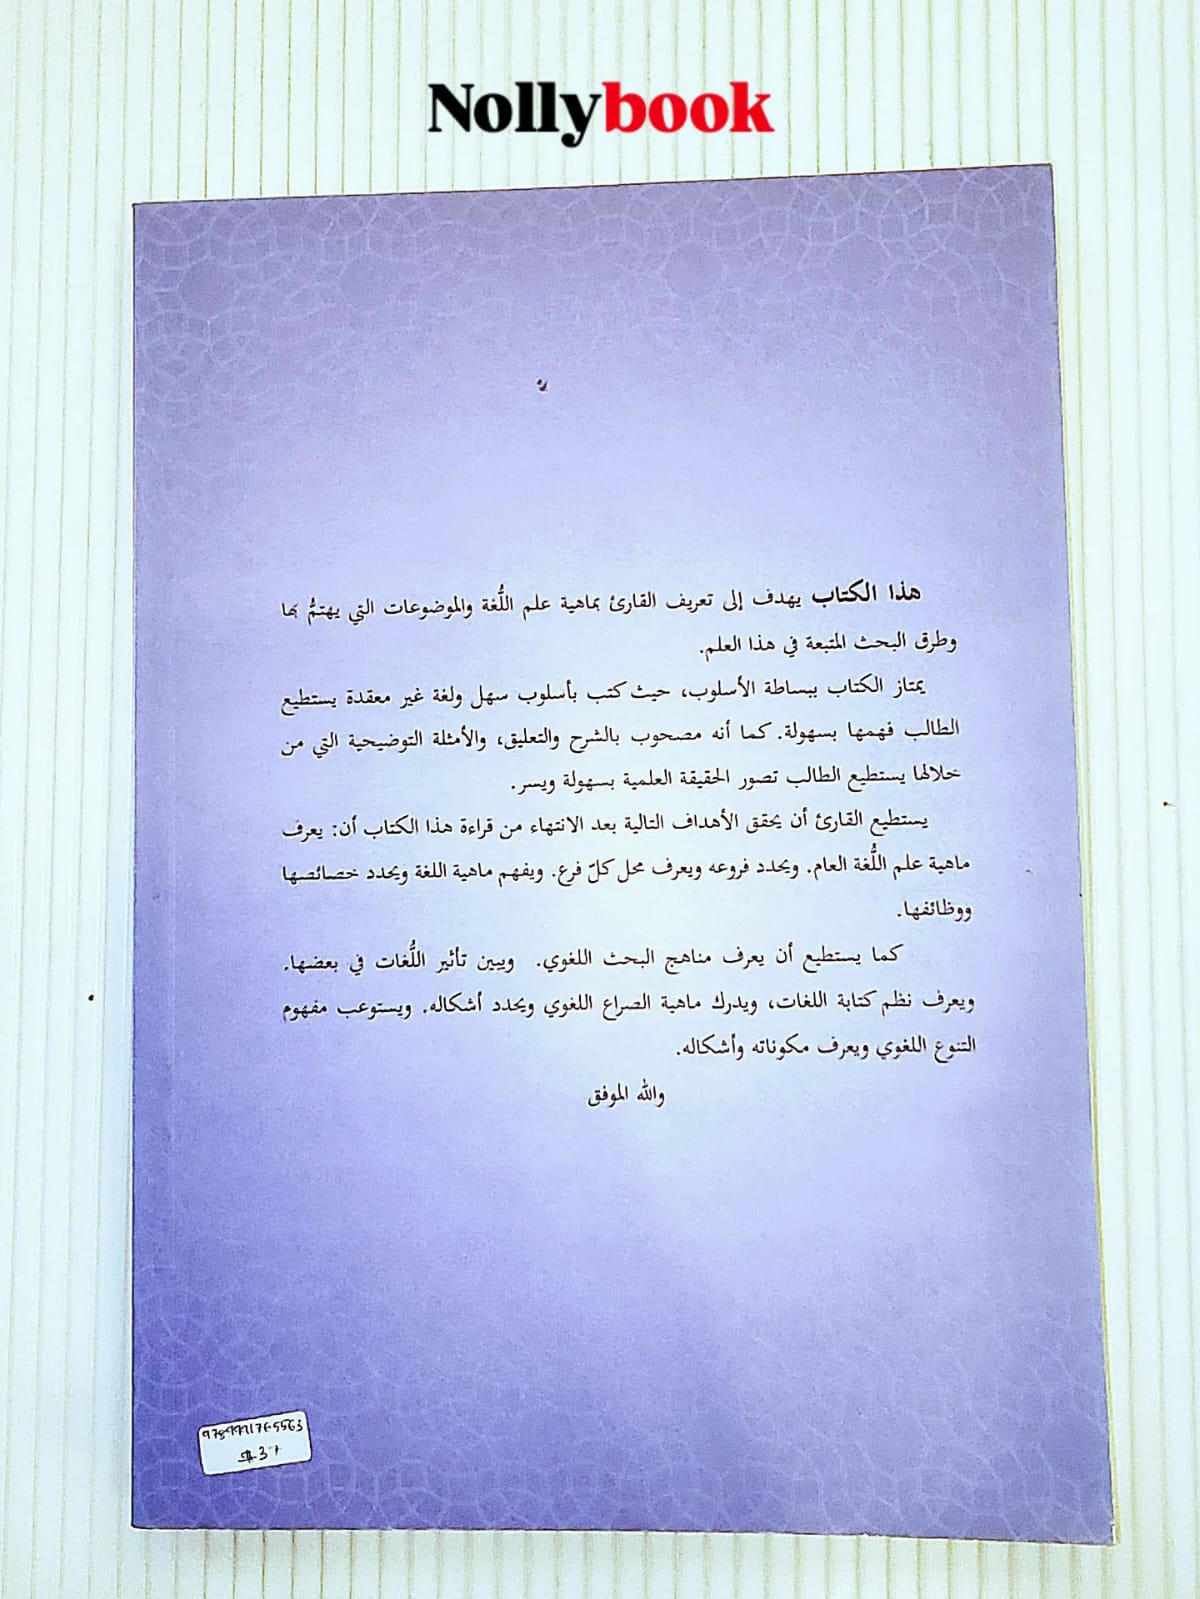 Nollybook
هذا الكتاب يهدف إلى تعريف القارئ بماهية علم اللُّغة والموضوعات التي يهتمُّ بها
وطرق البحث المتبعة في هذا العلم.
يمتاز الكتاب ببساطة الأسلوب، حيث كتب بأسلوب سهل ولغة غير معقدة يستطيع
الطالب فهمها بسهولة. كما أنه مصحوب بالشرح والتعليق، والأمثلة التوضيحية التي من
خلالها يستطيع الطالب تصور الحقيقة العلمية بسهولة ويسر.
يستطيع القارئ أن يحقق الأهداف التالية بعد الانتهاء من قراءة هذا الكتاب أن: يعرف
ماهية علم اللُّغة العام. ويحدد فروعه ويعرف محل كلّ فرع. ويفهم ماهية اللغة ويحدد خصائصها
ووظائفها.
كما يستطيع أن يعرف مناهج البحث اللغوي. ويبين تأثير اللُّغات في بعضها.
ويعرف نظم كتابة اللغات، ويدرك ماهية الصراع اللغوي ويحدد أشكاله. ويستوعب مفهوم
التنوع اللغوي ويعرف مكوناته وأشكاله.
والله الموفق